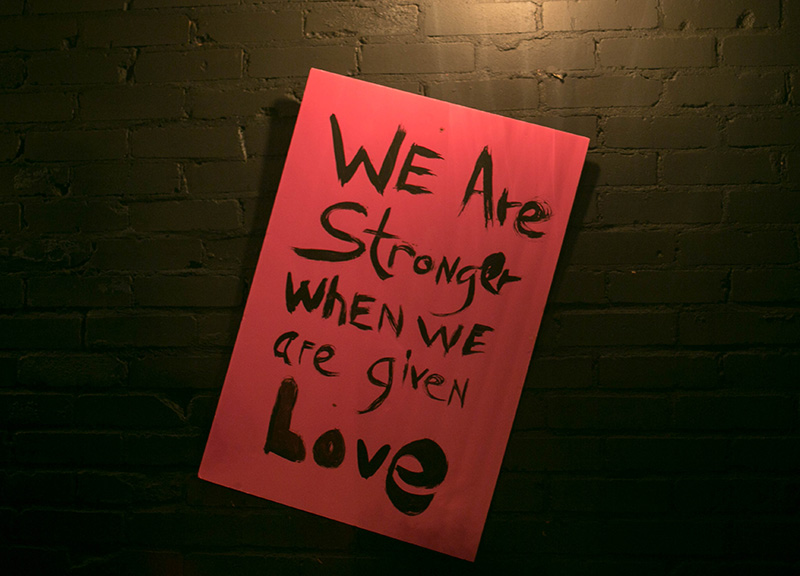 WE Are
Stronger
WHEN WE
are given
Love